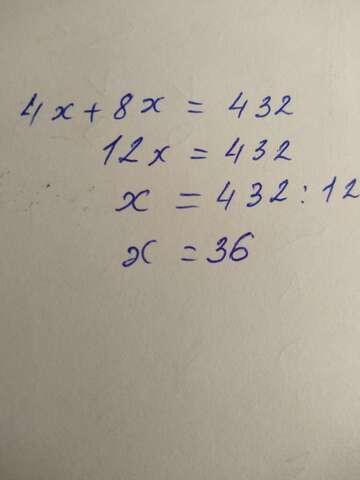 4x + 8x = 432
12x = 432
x = 432 : 12
x = 36